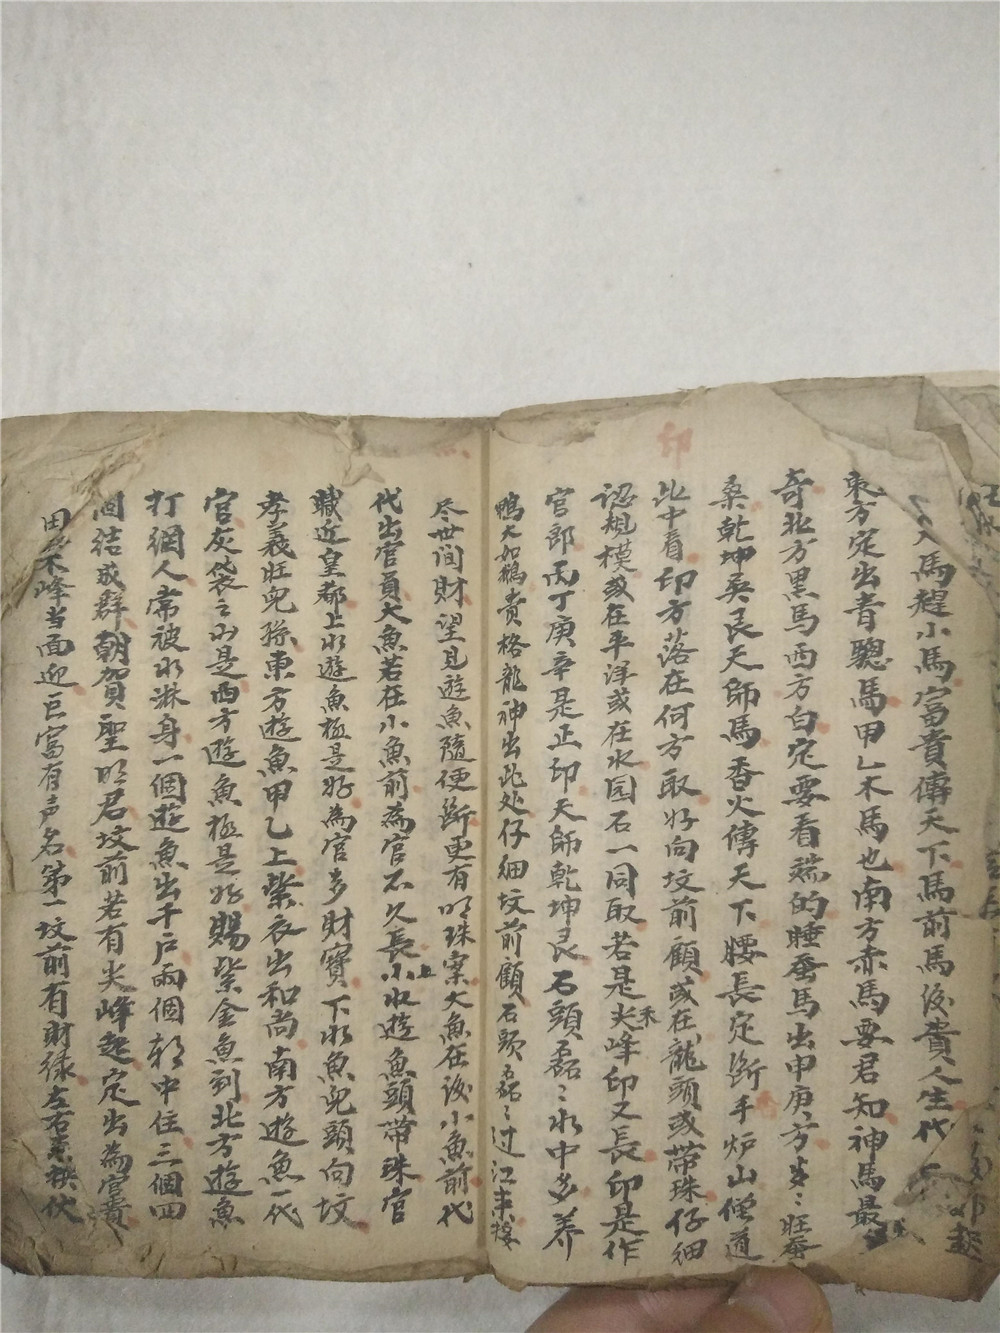 馬趕小馬富貴傳天下馬前馬後貴人生代
東方定出青驄馬甲乙木馬也南方赤馬要君知神馬最
奇北方黑馬西方白定要看端的睡蚕馬出申庚方岁〻旺蚕
桑乾坤巽艮天師馬香火傳天下腰長定断手炉山僧道
印
此中看印方落在何方取好向坟前顧或在龍頭或带珠仔細
認規模或在平洋或在水园石一同取若是尖峰印又長印是作
官郎丙丁庚辛是正印天師乾坤艮石頭磊〻水中多养
鴨大如鵝貴格龍神出此处仔細坟前顧石頭磊〻过江来
尽世间財望見遊魚隨便断更有明珠案大魚在後小魚前代
代出官員大魚若在小魚前為官不久長上小水遊魚頭带珠官
職近皇都上水遊魚極是好為官多財寶下水魚児頭向坟
孝義旺児孫東方遊魚甲乙上紫衣出和尚南方遊魚一代
官灰袋之水是西方遊魚極是好賜紫金魚到北方遊魚
打網人常被水淋身一個遊魚出千户兩個郡中住三個四
個結成群朝賀聖明君坟前若有尖峰起定出為官貴
田木峰当面迎巨富有声名第一坟前有財禄左右来